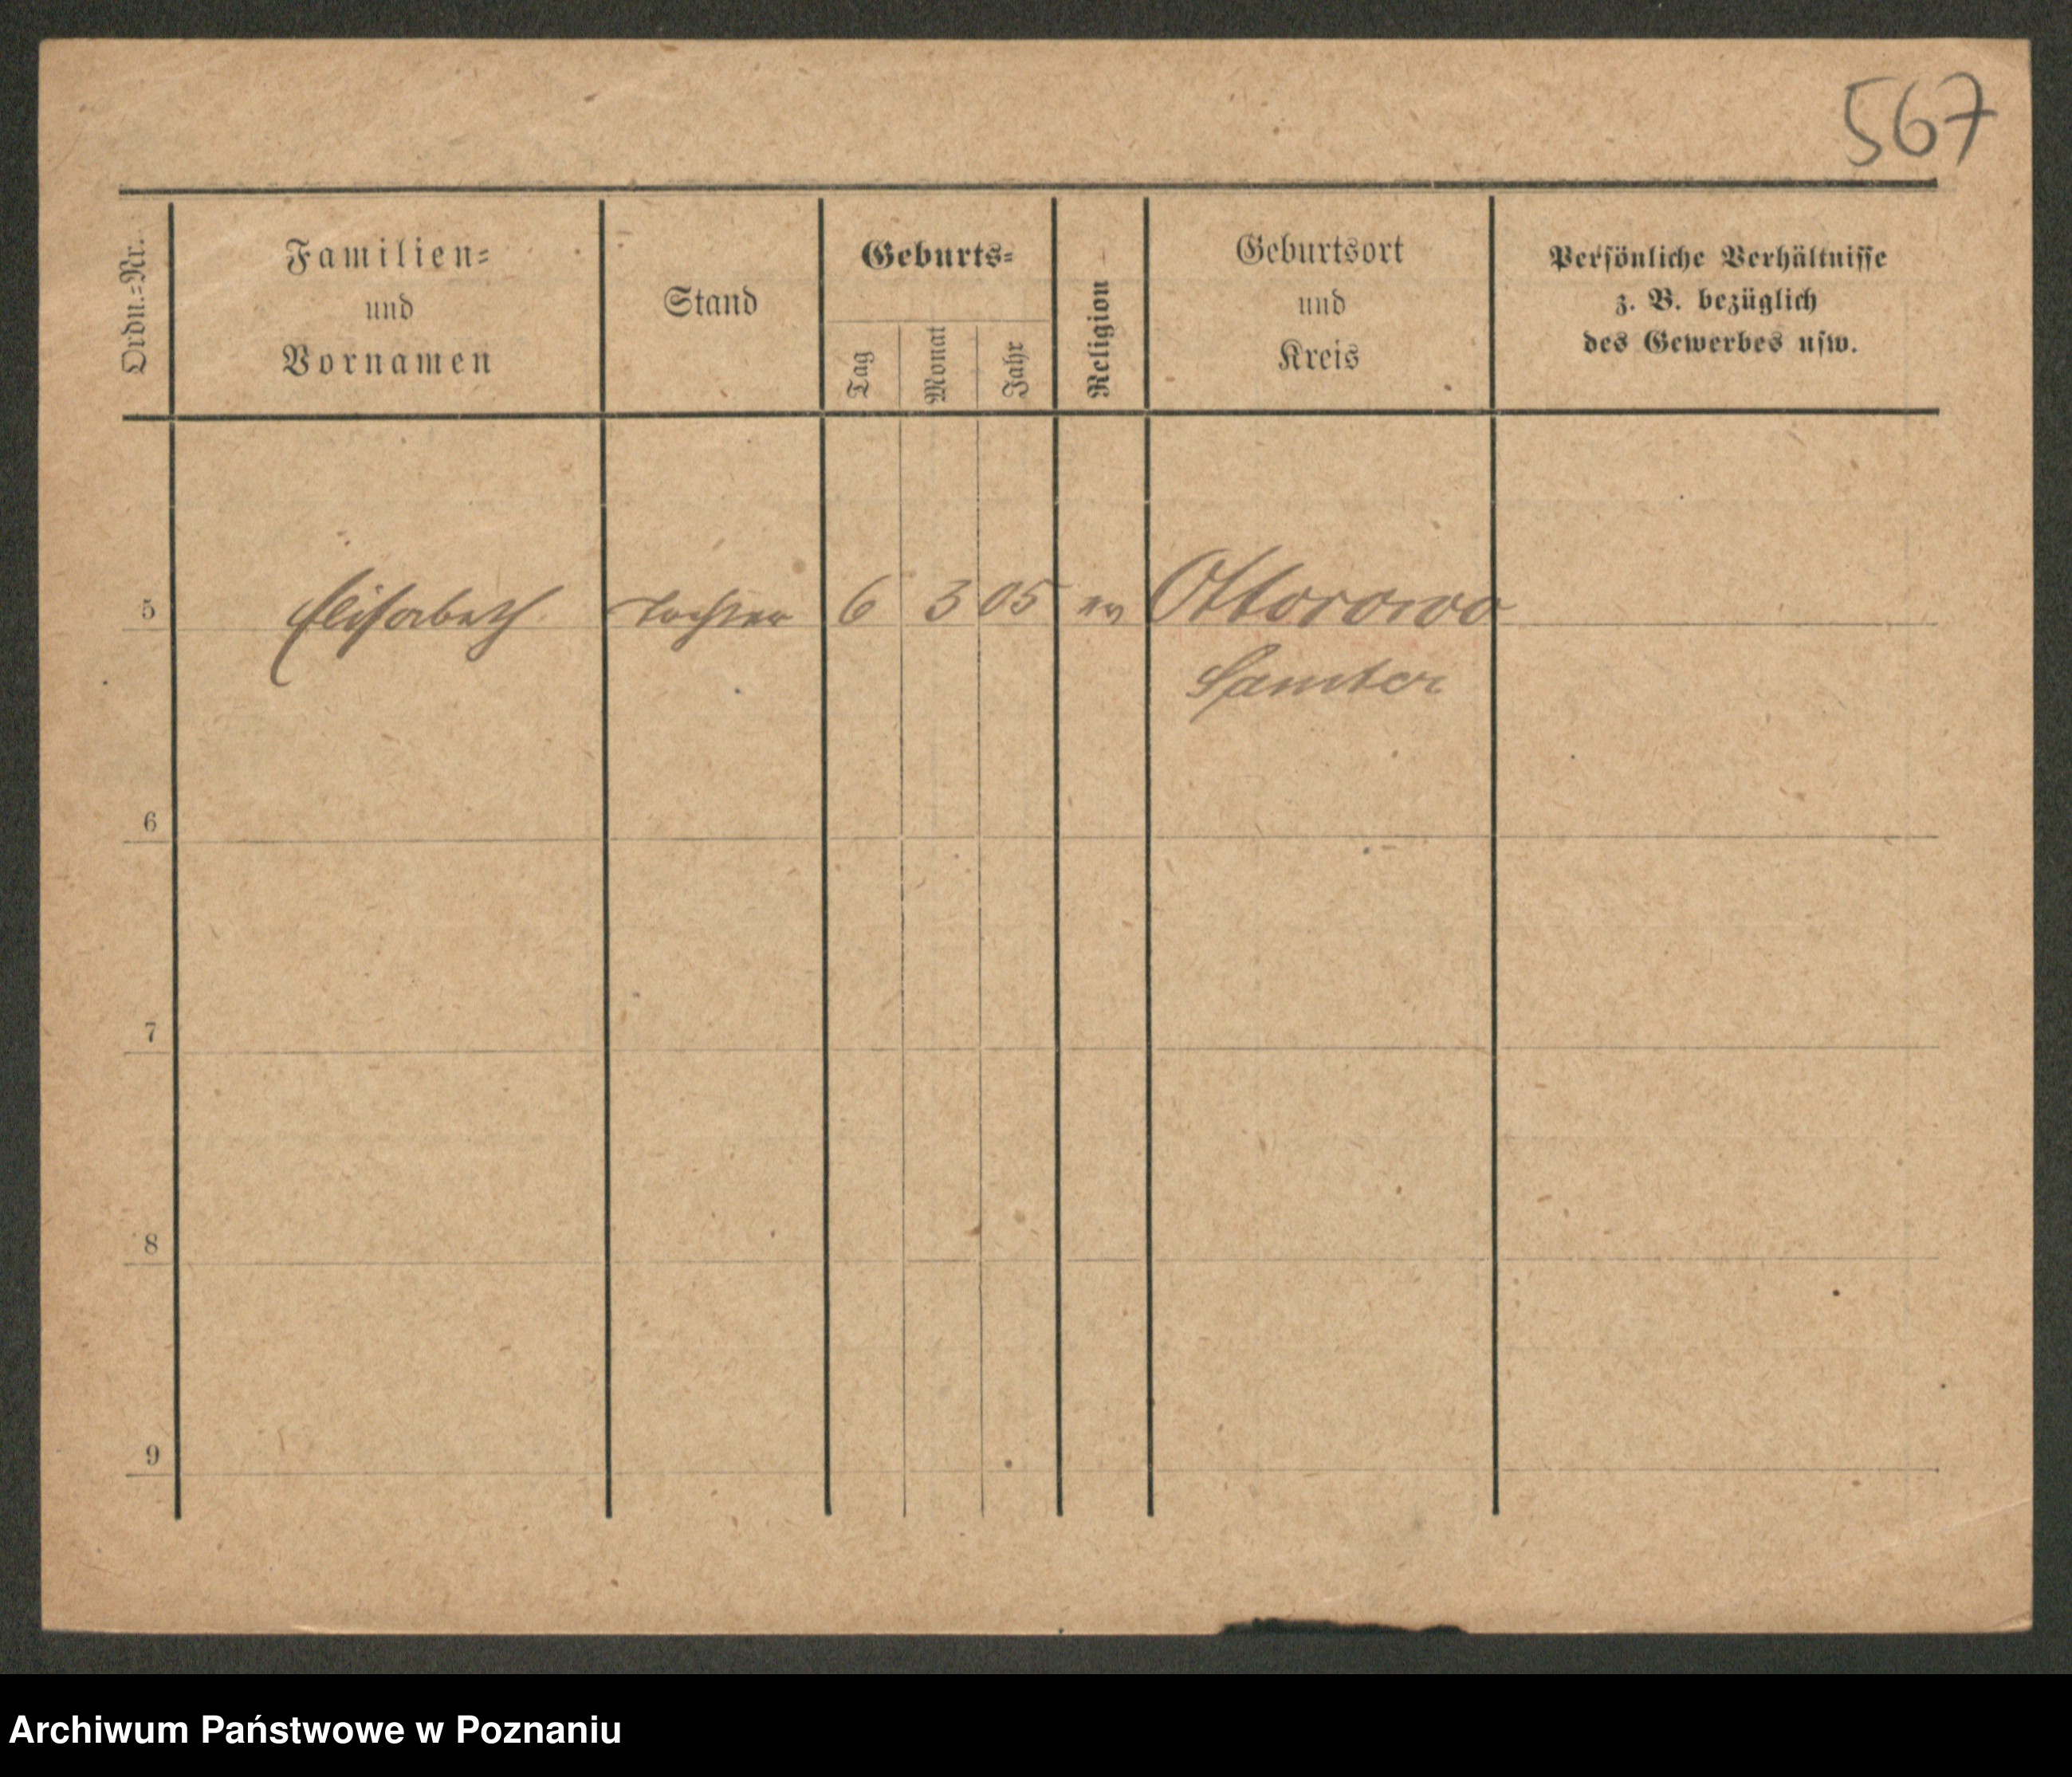 567
Ordn.=Nr.
Familien=
und
Vornamen
Stand
Geburts=
Tag
Monat
Jahr
Religion
Geburtsort
und
Kreis
Persönliche Verhältnisse
z. B. bezüglich
des Gewerbes usw.
5 Elisabeth Tochter 6 3 05 ev Ottorowo
Samter
6
7
8
9
Archiwum Państwowe w Poznaniu